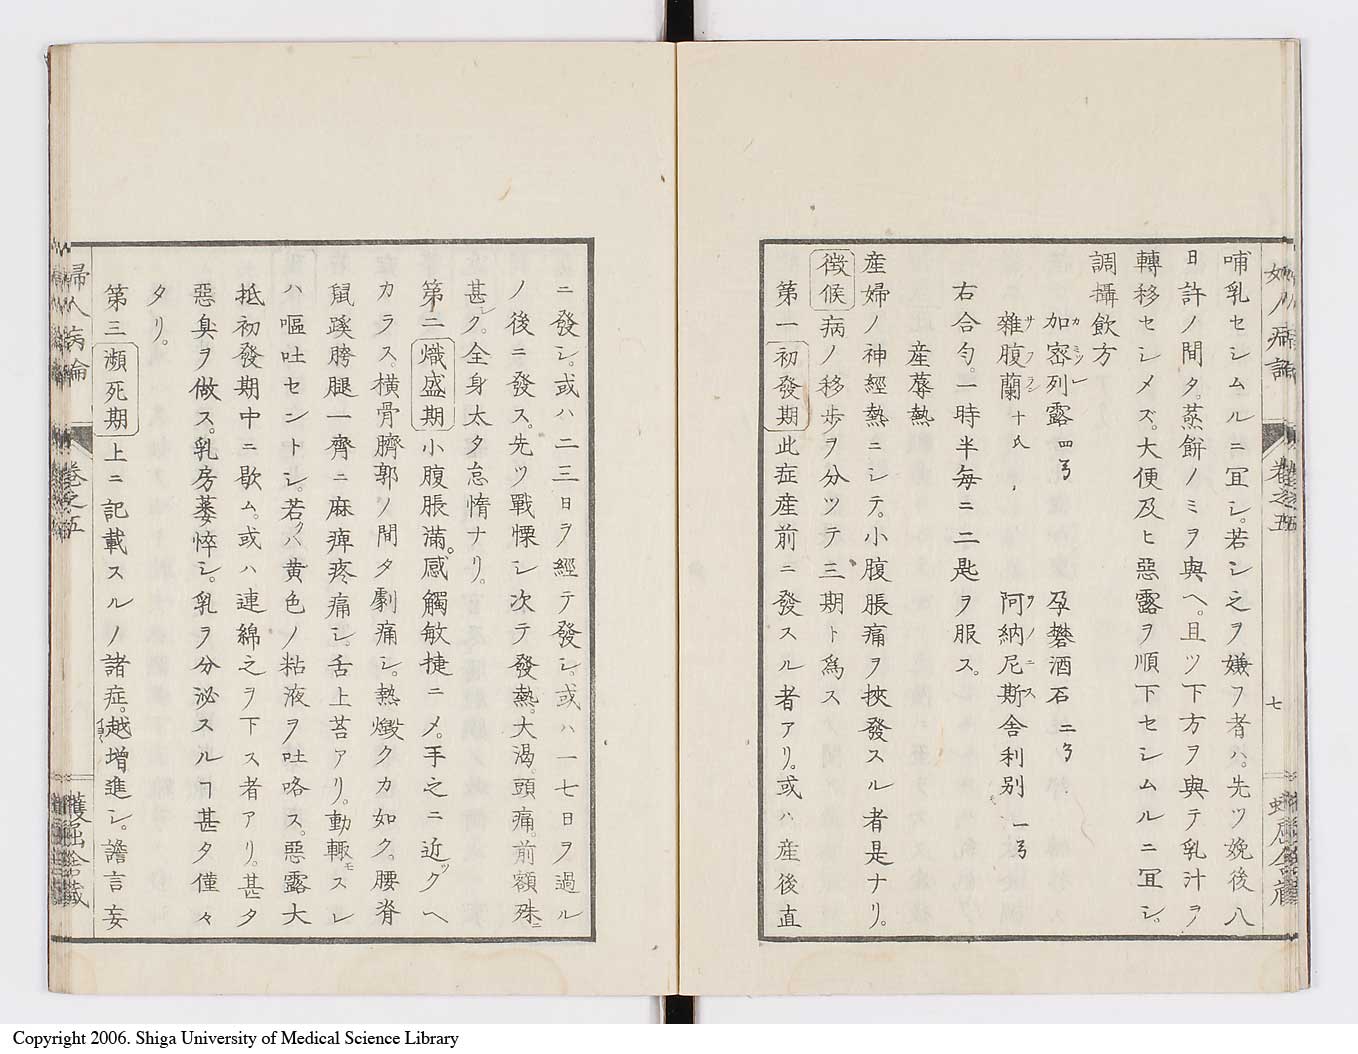 哺乳セシムルニ冝シ。若シ之ヲ嫌フ者ハ。先ツ娩後八
日許ノ間タ。蒸餅ノミヲ與ヘ。且ツ下方ヲ與テ乳汁ヲ
轉移セシメズ。大便及ヒ惡露ヲ順下セシムルニ冝シ。
調攝飲方
加密列露 四ヲ 孕礬酒石 二タ
カミツレ
雜腹蘭 十氏 阿納尼斯舎利别 一ヲ
サフラン アノニス
右合匀。一時半每ニ二匙ヲ服ス。
産蓐熱
産婦ノ神經熱ニシテ。小腹脹痛ヲ挾發スル者是ナリ。
徴候 病ノ移歩ヲ分ツテ三期ト為ス
第一 初發期 此症産前ニ發スル者アリ。或ハ産後直
ニ發シ。或ハ二三日ヲ經テ發シ。或ハ一七日ヲ過ル
ノ後ニ發ス。先ツ戰慄シ次テ發熱。大渇。頭痛。前額殊ニ
甚シク。全身太タ怠惰ナリ。
第二 熾盛期 小腹脹滿。感觸敏捷ニメ。手之ニ近ツクヘ
カラス。橫骨臍郭ノ間タ劇痛シ。熱燬クカ如ク。腰脊
鼠蹊胯腿一齊ニ麻痺疼痛シ。舌上苔アリ。動輙モスレ
ハ嘔吐セントシ。若クハ黄色ノ粘液ヲ吐咯ス。惡露大
抵初發期中ニ歇ム。或ハ連綿之ヲ下ス者アリ。甚タ
惡臭ヲ做ス。乳房萎悴シ。乳ヲ分泌スルヿ甚タ僅々
タリ。
第三 瀕死期 上ニ記載スルノ諸症。越增進シ。譫言妄
婦人病論
卷之五
七
蠖屈舎藏
Copyright 2006. Shiga University of Medical Science Library